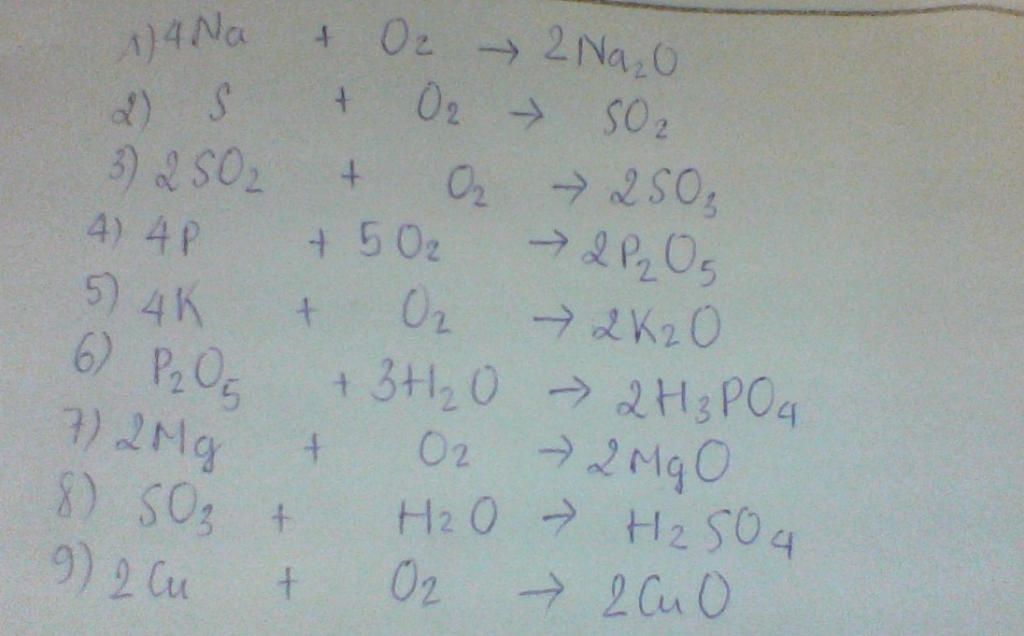 1) 4Na + O₂ → 2Na₂O
2) S + O₂ → SO₂
3) 2SO₂ + O₂ → 2SO₃
4) 4P + 5O₂ → 2P₂O₅
5) 4K + O₂ → 2K₂O
6) P₂O₅ + 3H₂O → 2H₃PO₄
7) 2Mg + O₂ → 2MgO
8) SO₃ + H₂O → H₂SO₄
9) 2Cu + O₂ → 2CuO